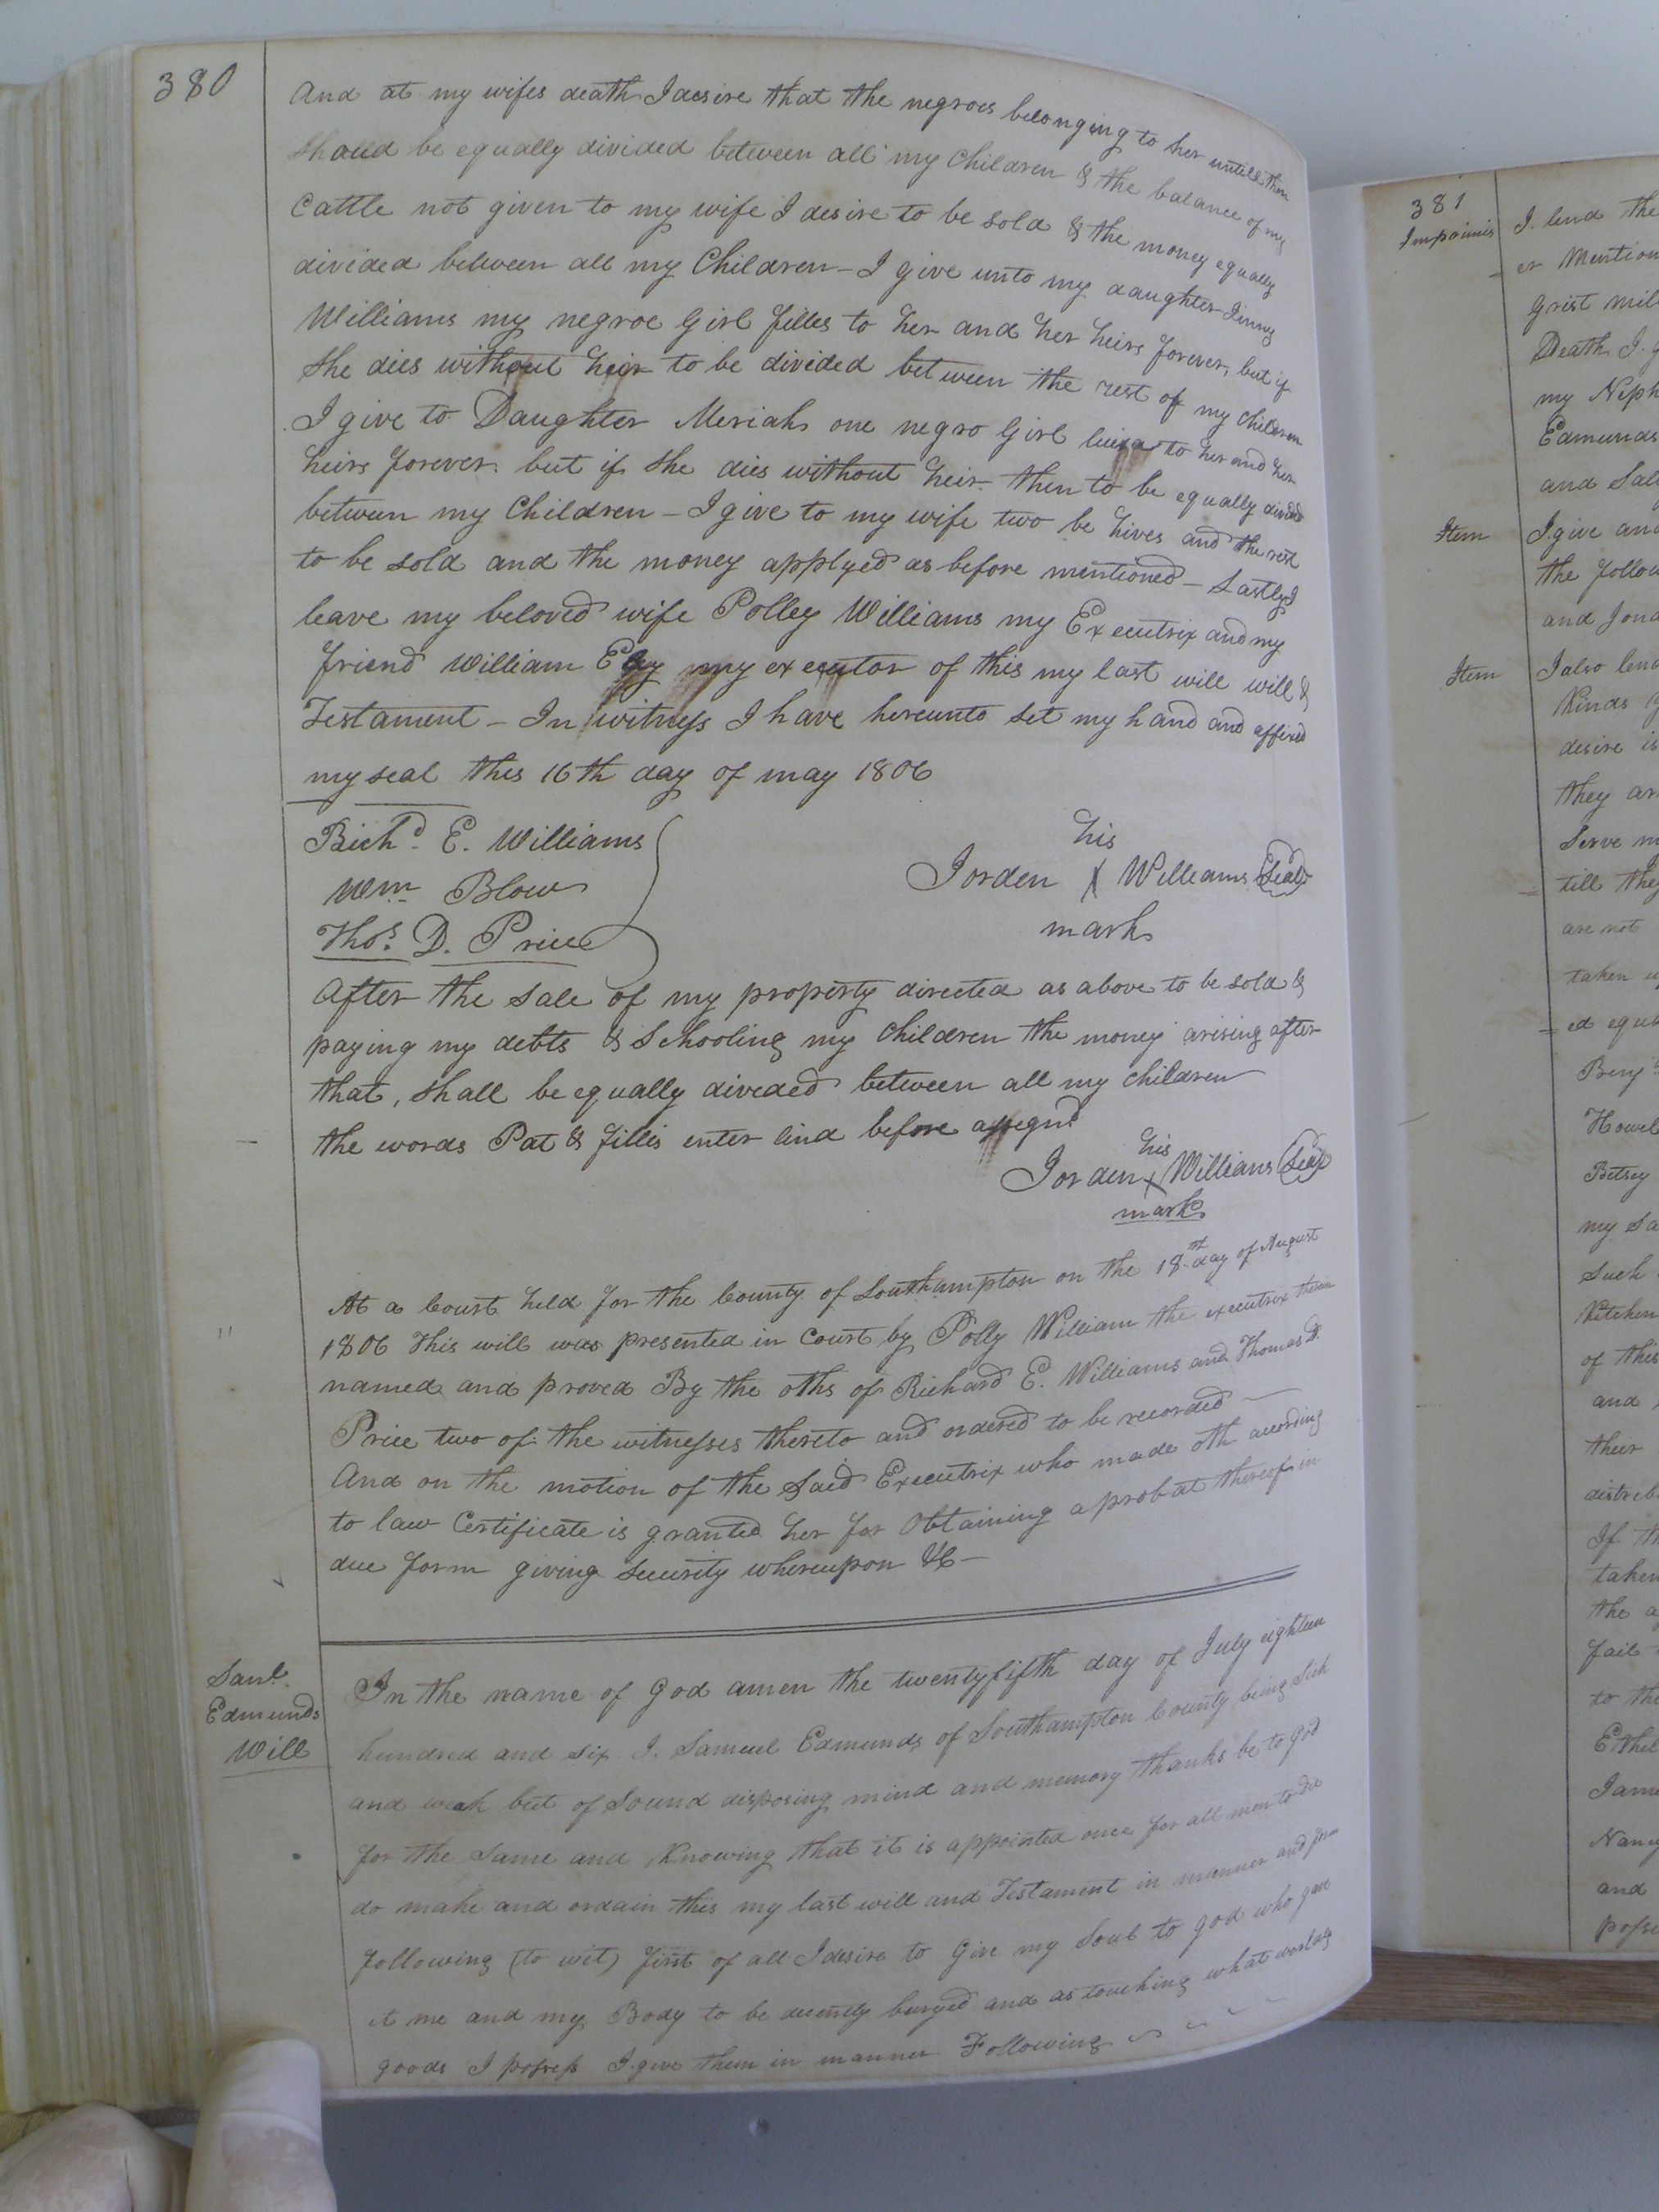 380
And at my wifes death I desire that the negroes belonging to her untill then
should be equally divided between all my Children & the balance of my
Cattle not given to my wife I desire to be sold & the money equally
divided between all my Children - I give unto my daughter Jinny
Williams my negroe Girl filles to her and her heirs forever, but if
she dies without heir to be divided between the rest of my Children
I give to Daughter Meriah one negro Girl to her and her
heirs forever but if she dies without heir then to be equally divided
between my Children - I give to my wife two be hives and the rest
to be sold and the money applyed as before mentioned - Lastly I
leave my beloved wife Polley Williams my Executrix and my
friend William my executor of this my last will will &
Testament - In witness I have hereunto set my hand and affixed
my seal this 16th day of may 1806
Richd. E. Williams
Wm. Blow
Thos. D. Price
his
Jorden X Williams (Seal)
mark
After the Sale of my property directed as above to be sold &
paying my debts & Schooling my Children the money arising after
that, shall be equally divided between all my children
the words Pat & fillis enter lind before assegnd
his
Jorden X Williams (Seal)
mark
At a Court held for the County of Southampton on the 18th day of August
1806 This will was presented in Court by Polly William the executrix therein
named and proved By the oths of Richard E. Williams and Thomas D.
Price two of the witnesses thereto and ordered to be recorded -
And on the motion of the Said Executrix who made oth according
to law Certificate is granted her for Obtaining a probat thereof in
due form giving Security whereupon &c -
Saml.
Edmunds
Will
In the name of God amen the twentyfifth day of July eighteen
hundred and six I. Samuel Edmunds of Southampton County being Sick
and weak but of Sound disposing mind and memory thanks be to God
for the Same and Knowing that it is appointed once for all men to die
do make and ordain this my last will and Testament in manner and form
following (to wit) first of all I desire to Give my Soul to god who gave
it me and my Body to be decently buryed and as touching what worldly
goods I possess I give them in manner Following
381
Impoimis I. lend the
er Mention
Grist mil
Death I. g
my Neph
Edmunds
and Sal
Item I give and
the follow
and Jona
Item I also lend
Kinds
desire is
they ar
Serve m
till they
are not
taken u
ed equa
Benj
Howel
Betsey
my Sa
Such
Kitchen
of this
and
their
distrib
If th
taken
the a
fail
to the
Ethel
Jame
Nancy
and
posse